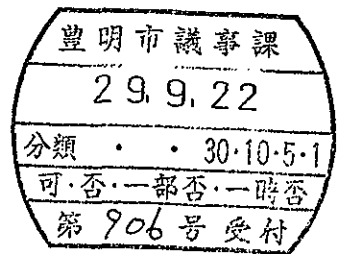 豊明市議事課
29.9.22
分類 ・ ・ 30・10・5・1
可・否・一部否・一時否
第906号受付